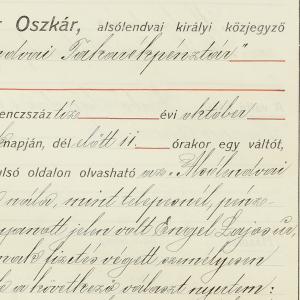 r Oszkár, alsólendvai királyi közjegyző
ndvai Takarékpénztár"
enczszáz tiz évi október
napján, dél előtt 11. órakor egy váltót,
ulsó oldalon olvasható az „Alsólendvai
nála, mint telepesnél, pénz-
ugyanott jelen volt Engel Lajos úr,
nak fizetés végett személyesen
a következő választ nyertem: